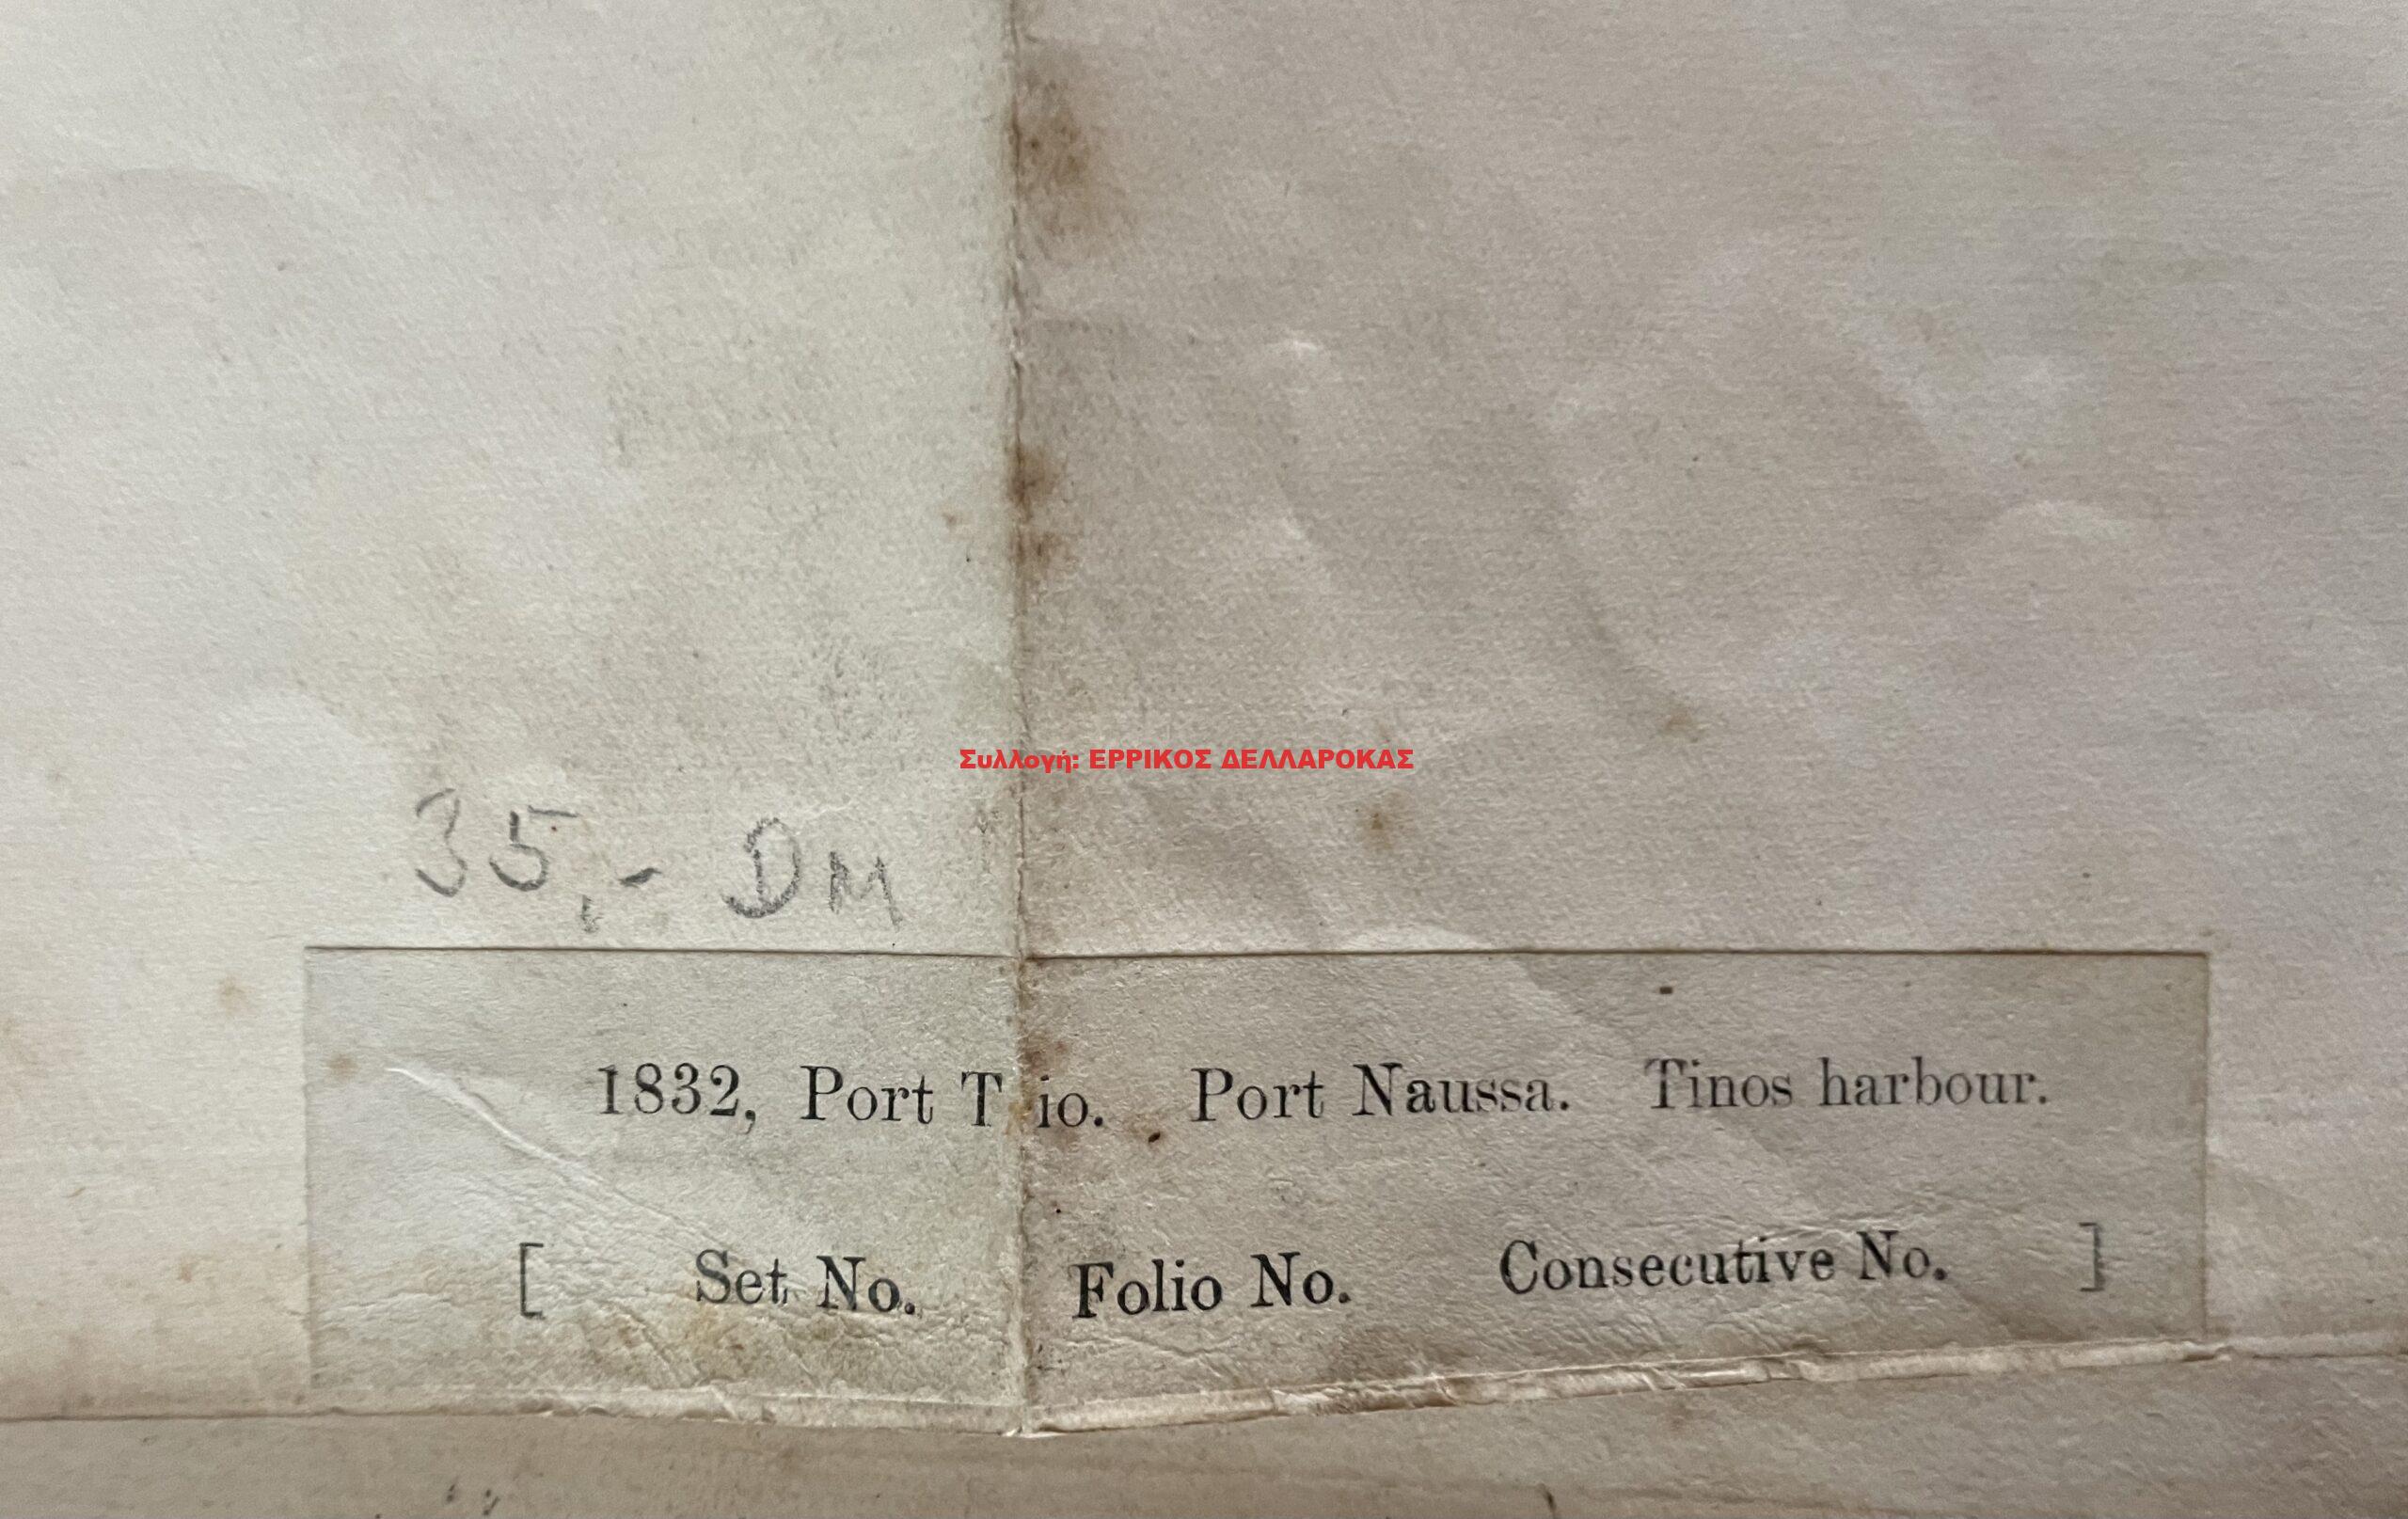 Συλλογή: ΕΡΡΙΚΟΣ ΔΕΛΛΑΡΟΚΑΣ
35,- DM
1832, Port T io. Port Naussa. Tinos harbour.
[ Set No. Folio No. Consecutive No. ]